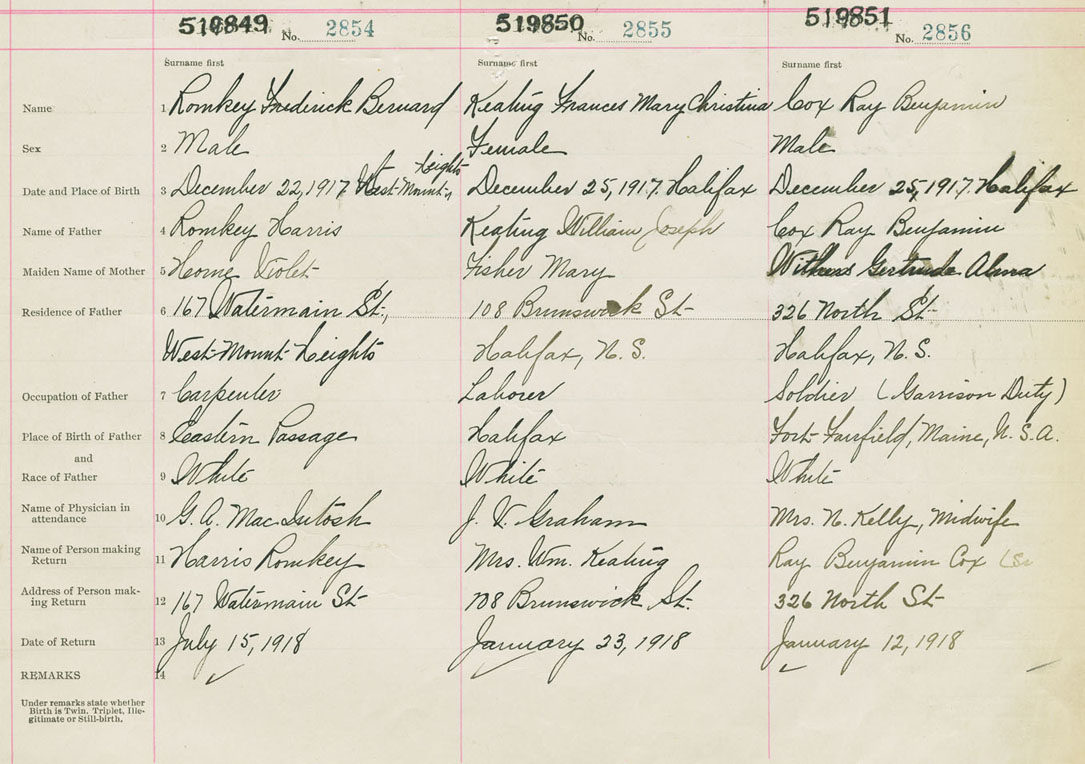 519849 No. 2854 519850 No. 2855 519851 No. 2856
Surname first Surname first Surname first
Name 1 Romkey Frederick Bernard Keating Frances Mary Christina Cox Ray Benjamin
Sex 2 Male Female Male
Heights
Date and Place of Birth 3 December 22, 1917 West Mount December 25, 1917. Halifax December 25, 1917. Halifax
Name of Father 4 Romkey Harris Keating William Joseph Cox Ray Benjamin
Maiden Name of Mother 5 Horne Violet Fisher Mary Withers Gertrude Alma
Residence of Father 6 167 Watermain St., 108 Brunswick St 326 North St
West Mount Heights Halifax, N. S. Halifax, N. S.
Occupation of Father 7 Carpenter Laborer Soldier (Garrison Duty)
Place of Birth of Father 8 Eastern Passage Halifax Fort Fairfield, Maine, U. S. A.
and
Race of Father 9 White White White
Name of Physician in
attendance 10 G. A. MacIntosh J. V. Graham Mrs. N. Kelly, Midwife
Name of Person making
Return 11 Harris Romkey Mrs. Wm. Keating Ray Benjamin Cox (Sr
Address of Person mak-
ing Return 12 167 Watermain St 108 Brunswick St. 326 North St
Date of Return 13 July 15, 1918 January 23, 1918 January 12, 1918
REMARKS 14
Under remarks state whether
Birth is Twin, Triplet, Ille-
gitimate or Still-birth.